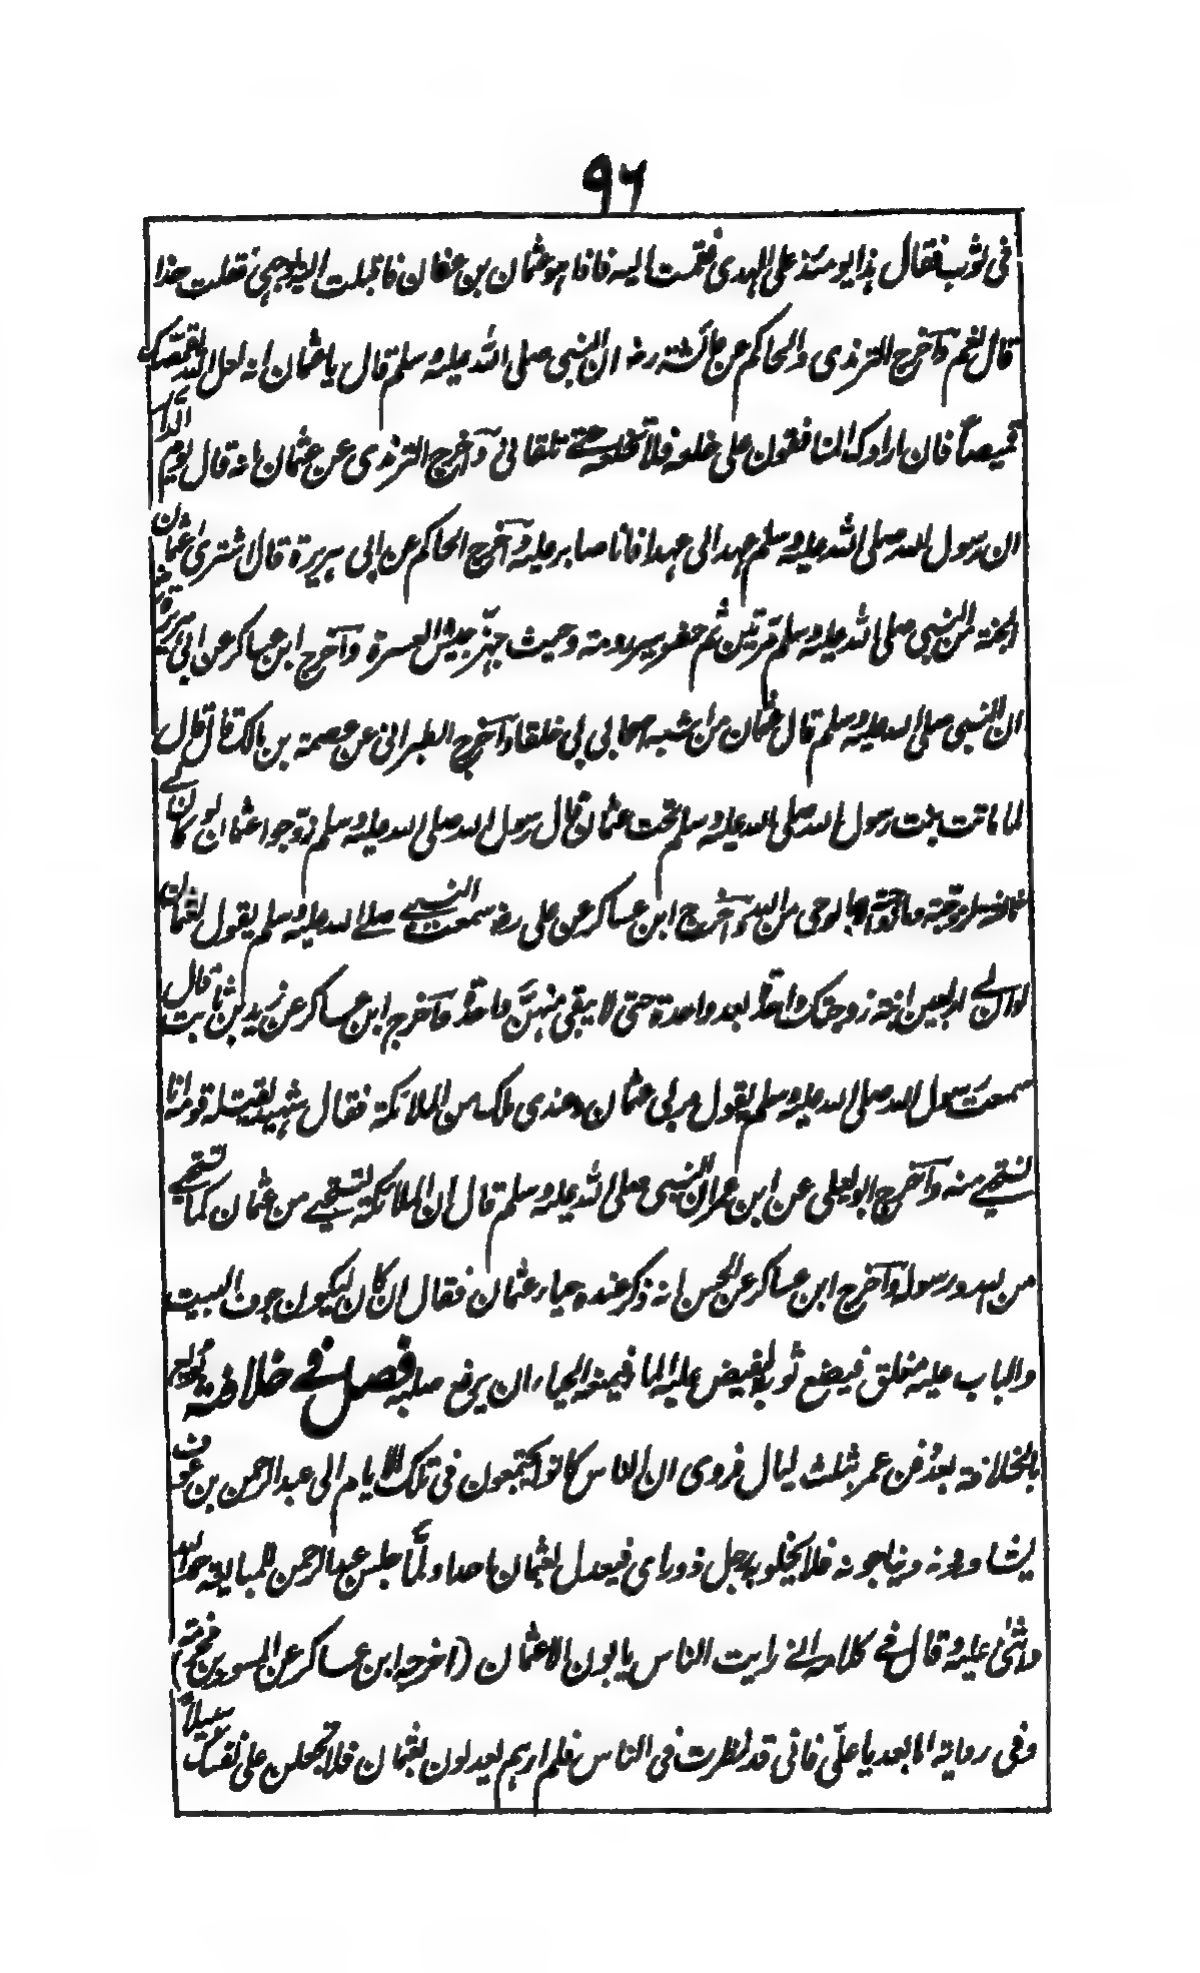 ٩٦
فی ثوب فقال هذا یومئذ علی الهدی فقمت الیه فاذا هو عثمان بن عفان فاقبلت الیه بوجهی فقلت هذا
قال نعم وآخرج الترمذی والحاکم عن عائشة رضـ ان النبی صلی الله علیه وسلم قال یا عثمان انه لعل الله یقمصک
قمیصاً فان ارادوک المنافقون علی خلعه فلا تخلعه حتے تلقانی وآخرج الترمذی عن عثمان انه قال یوم الدار
ان رسول الله صلی الله علیه وسلم عهد الی عهدا فانا صابر علیه وآخرج الحاکم عن ابی هریرة قال اشتری عثمان
الجنة من النبی صلی الله علیه وسلم مرتین ثم حفر بیر رومة وحیث جهّز جیش العسرة وآخرج ابن عساکر عن ابی هریرة
ان النبی صلی الله علیه وسلم قال عثمان من اشبه اصحابی بی خلقا وآخرج الطبرانی عن عصمة بن مالک قال
لما ماتت بنت رسول الله صلی الله علیه وسلم تحت عثمان قال رسول الله صلی الله علیه وسلم زوجوا عثمان لو کان لے
ثالثة لزوجته وما زوجته الا بالوحی من الله وآخرج ابن عساکر عن علی رضـ سمعت النبیے صلے الله علیه وسلم یقول لعثمان
لو ان لے اربعین ابنة زوجتک واحدة بعد واحدة حتی لا یبقی منهنّ واحدة وآخرج ابن عساکر عن زید بن ثابت قال
سمعت رسول الله صلی الله علیه وسلم یقول مر بی عثمان وعندی ملک من الملائکة فقال شهید یقتله قومه انا
نستحیے منه وآخرج ابو یعلی عن ابن عمر ان النبی صلی الله علیه وسلم قال ان الملائکة لتستحیے من عثمان کما تستحیے
من الله ورسوله وآخرج ابن عساکر عن الحسن انه ذکر عنده حیاء عثمان فقال ان کان لیکون جوف البیت
والباب علیه مغلق فیضع ثوبه لیفیض علیه الماء فیمنعه الحیاء ان یرفع صلبه فصل فے خلافته
بالخلافة بعد دفن عمر بثلث لیال فروی ان الناس کانوا یجتمعون فی تلک الایام الی عبد الرحمن بن عوف
یشاورونه ویناجونه فلا یخلو به رجل ذو رای فیعدل بعثمان احدا ولمّا جلس عبد الرحمن للمبایعة حمد الله
واثنی علیه وقال فے کلامه انے رایت الناس یابون الا عثمان (اخرجه ابن عساکر عن المسور بن مخرمة)
وفی روایة اما بعد یا علیّ فانی قد نظرت فی الناس فلم ارهم یعدلون بعثمان فلا تجعلن علی نفسک سبیلاً